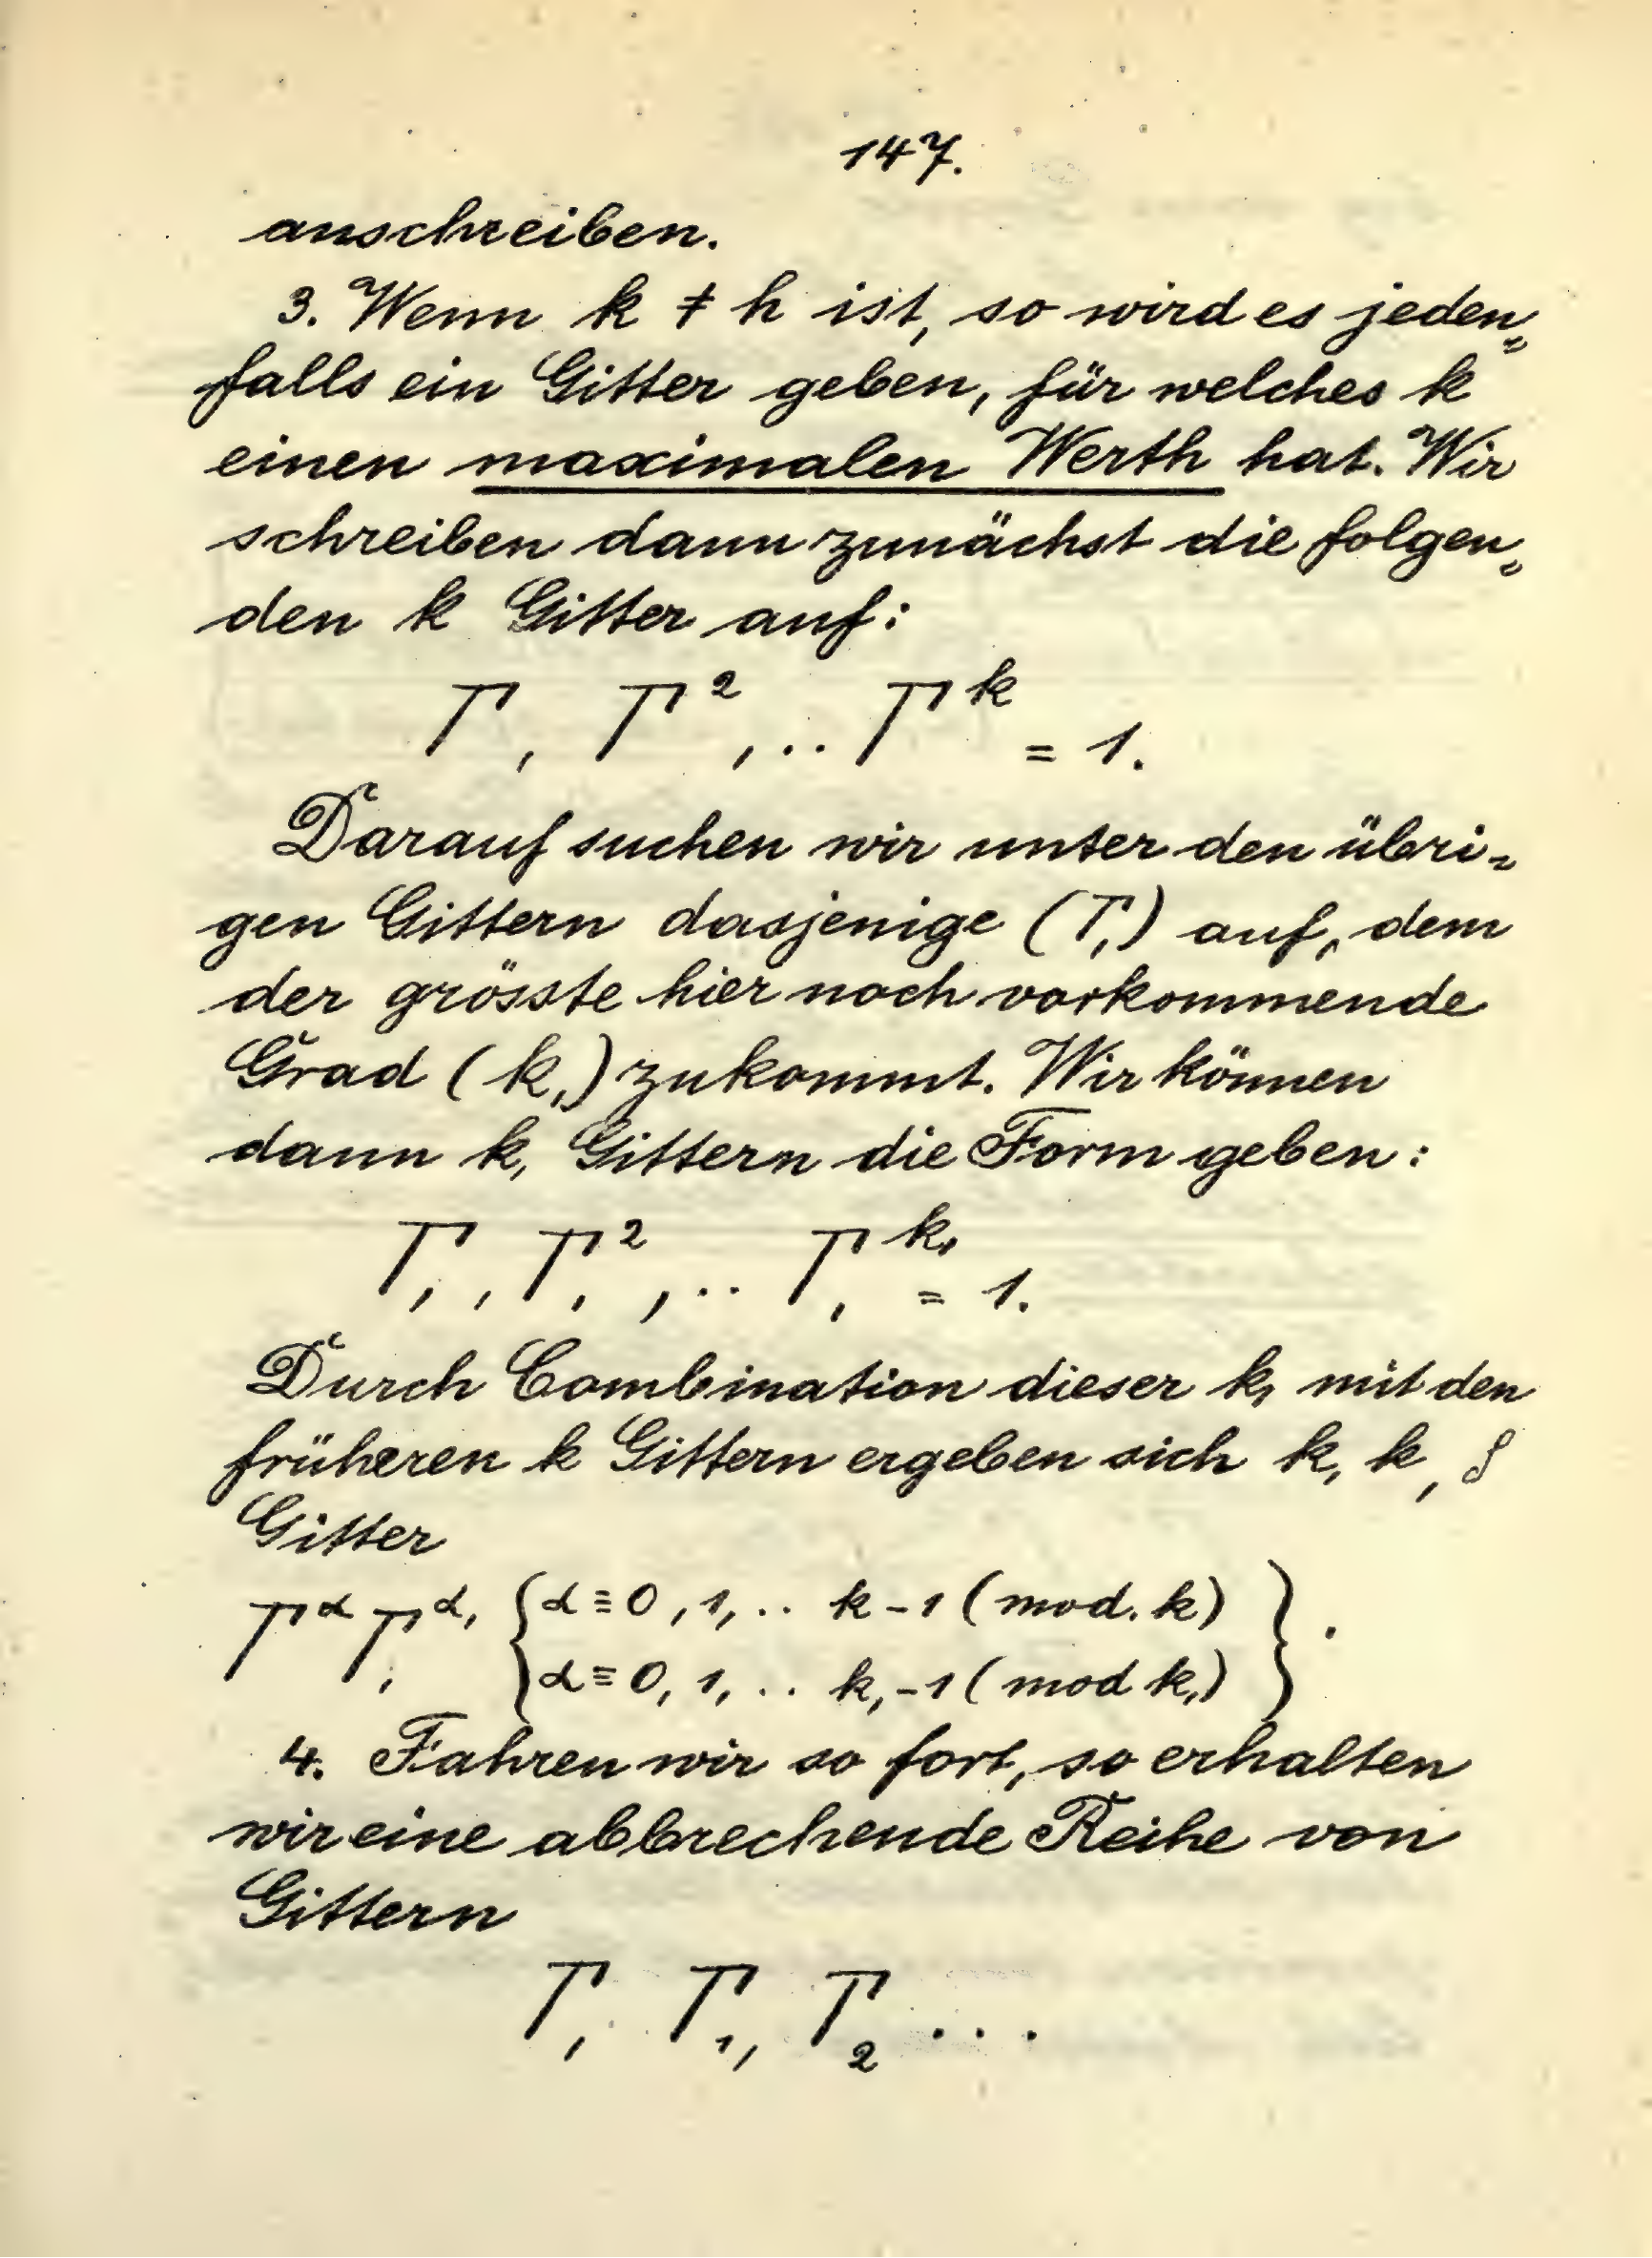 147.
anschreiben.
3. Wenn k ≠ h ist, so wird es jeden-
falls ein Gitter geben, für welches k
einen maximalen Werth hat. Wir
schreiben dann zunächst die folgen-
den k Gitter auf:
Γ, Γ², .. Γᵏ = 1.
Darauf suchen wir unter den übri-
gen Gittern dasjenige (Γ₁) auf, dem
der grösste hier noch vorkommende
Grad (k₁) zukommt. Wir können
dann k₁ Gittern die Form geben:
Γ₁, Γ₁², .. Γ₁^k₁ = 1.
Durch Combination dieser k₁ mit den
früheren k Gittern ergeben sich k₁ k,
Gitter
Γ^α Γ₁^α₁ { α ≡ 0, 1, .. k-1 (mod. k) } .
{ α ≡ 0, 1, .. k₁-1 (mod k₁) }
4. Fahren wir so fort, so erhalten
wir eine abbrechende Reihe von
Gittern
Γ, Γ₁, Γ₂ ...